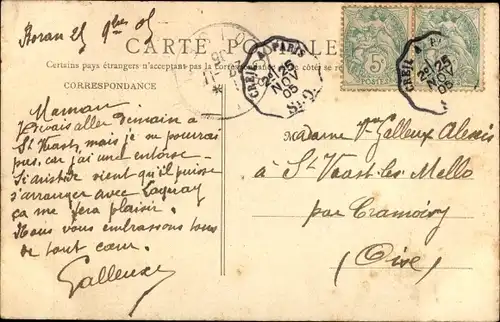 Boran 25 9bre 05
CARTE POSTALE
Certains pays étrangers n'acceptent pas la correspondance
CORRESPONDANCE
Maman
Je vais aller demain à
St Vaast, mais je ne pourrai
pas, car j'ai une entorse.
Si Aristide vient qu'il puisse
s'arranger avec
ça me fera plaisir.
Nous vous embrassons tous
de tout cœur.
Galleux
CREIL A PARIS
2e 25
NOV
05
5c
POSTES
CREIL A
2e 25
NOV
05
Madame Vve Galleux Alexis
à St Vaast-les-Mello
par Cramoisy
(Oise)